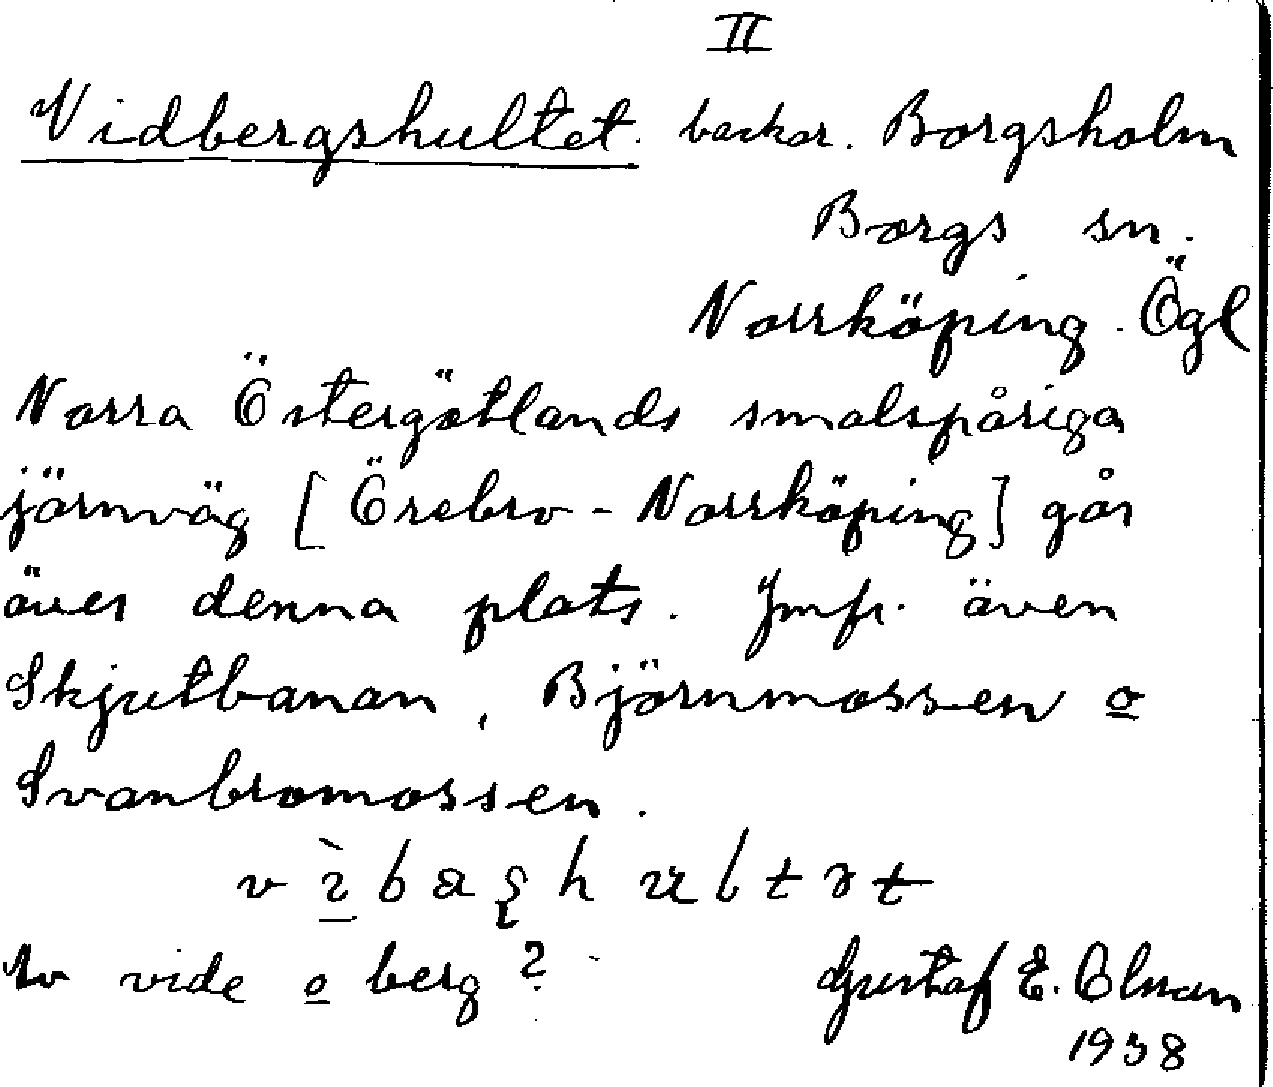 II
Vidbergshultet. backar. Borgsholm
Borgs sn.
Norrköping. Ögl
Norra Östergötlands smalspåriga
järnväg [Örebro - Norrköping] går
över denna plats. Jmfr. även
Skjutbanan, Björnmossen o
Svanbromossen.
Av vide o berg?
Gustaf E. Olman
1938